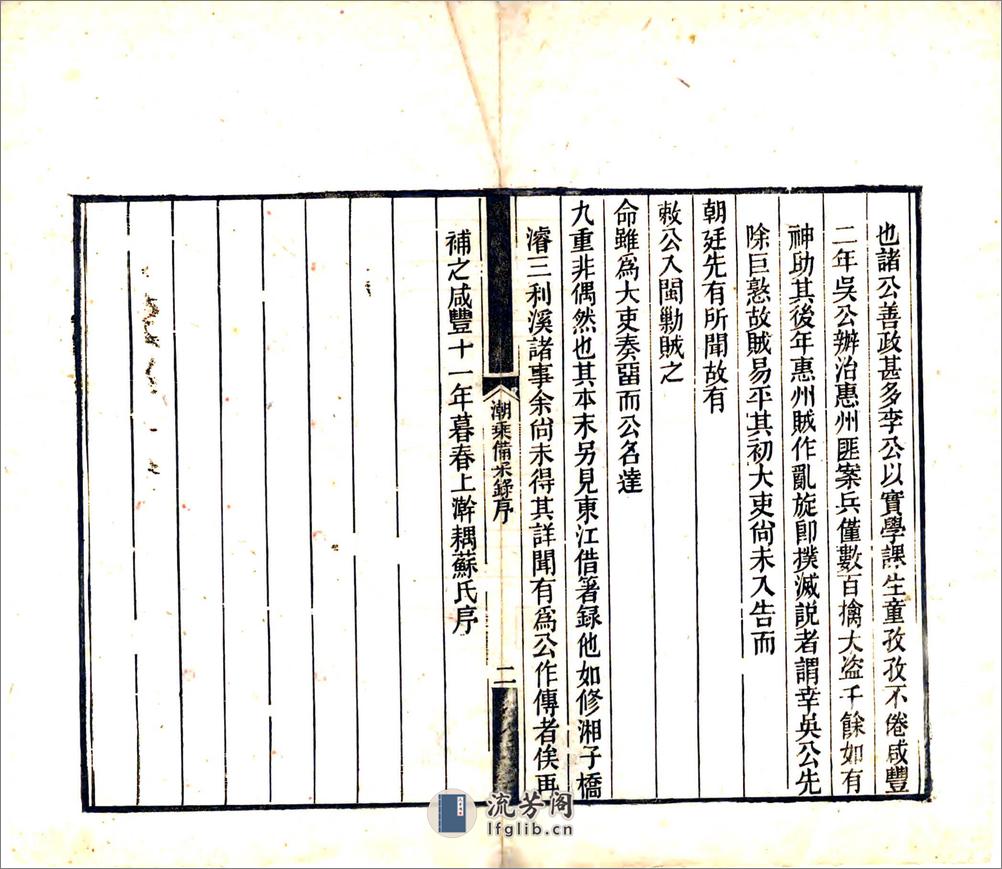 也諸公善政甚多李公以實學課生童孜孜不倦咸豐
二年吳公辦治惠州匪案兵僅數百擒大盜千餘如有
神助其後年惠州賊作亂旋卽撲滅説者謂幸吳公先
除巨憝故賊易平其初大吏尙未入告而
朝廷先有所聞故有
敕公入閩勦賊之
命雖爲大吏奏畱而公名達
九重非偶然也其本末另見東江借箸録他如修湘子橋
濬三利溪諸事余尙未得其詳聞有爲公作傳者俟再
補之咸豐十一年暮春上澣耦蘇氏序
潮乘備采錄序
二
流芳阁
lfglib.cn